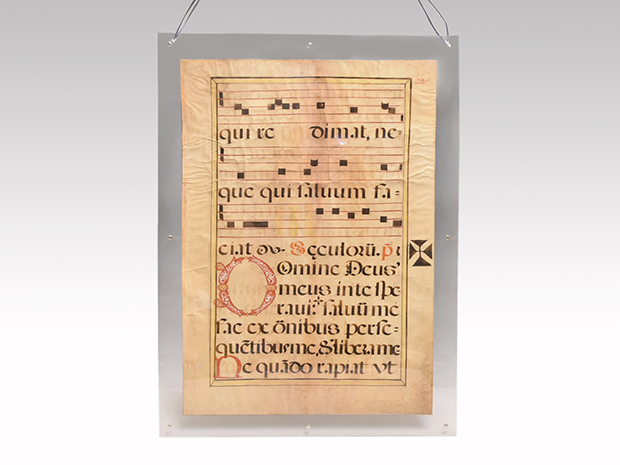 qui re dimat, ne=
que qui saluum fa=
ciat ov. Sęculorū. p̄
Domine Deus
meus in te spe
raui: saluū me
fac ex oñibus perse=
quētibus me, & libera me
Ne quādo rapiat vt